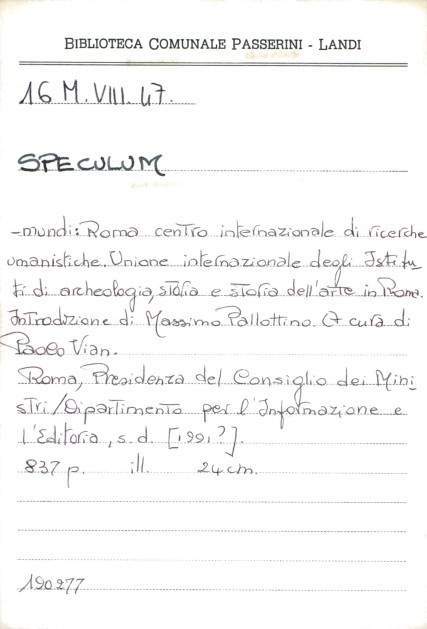 BIBLIOTECA COMUNALE PASSERINI - LANDI
16 M.VIII.47.
SPECULUM
-mundi: Roma centro internazionale di ricerche
umanistiche. Unione internazionale degli Istitu_
ti di archeologia, storia e storia dell'arte in Roma.
Introduzione di Massimo Pallottino. A cura di
Paolo Vian.
Roma, Presidenza del Consiglio dei Mini_
stri/Dipartimento per l'Informazione e
l'Editoria, s.d. [1991?].
837 p. ill. 24 cm.
190277